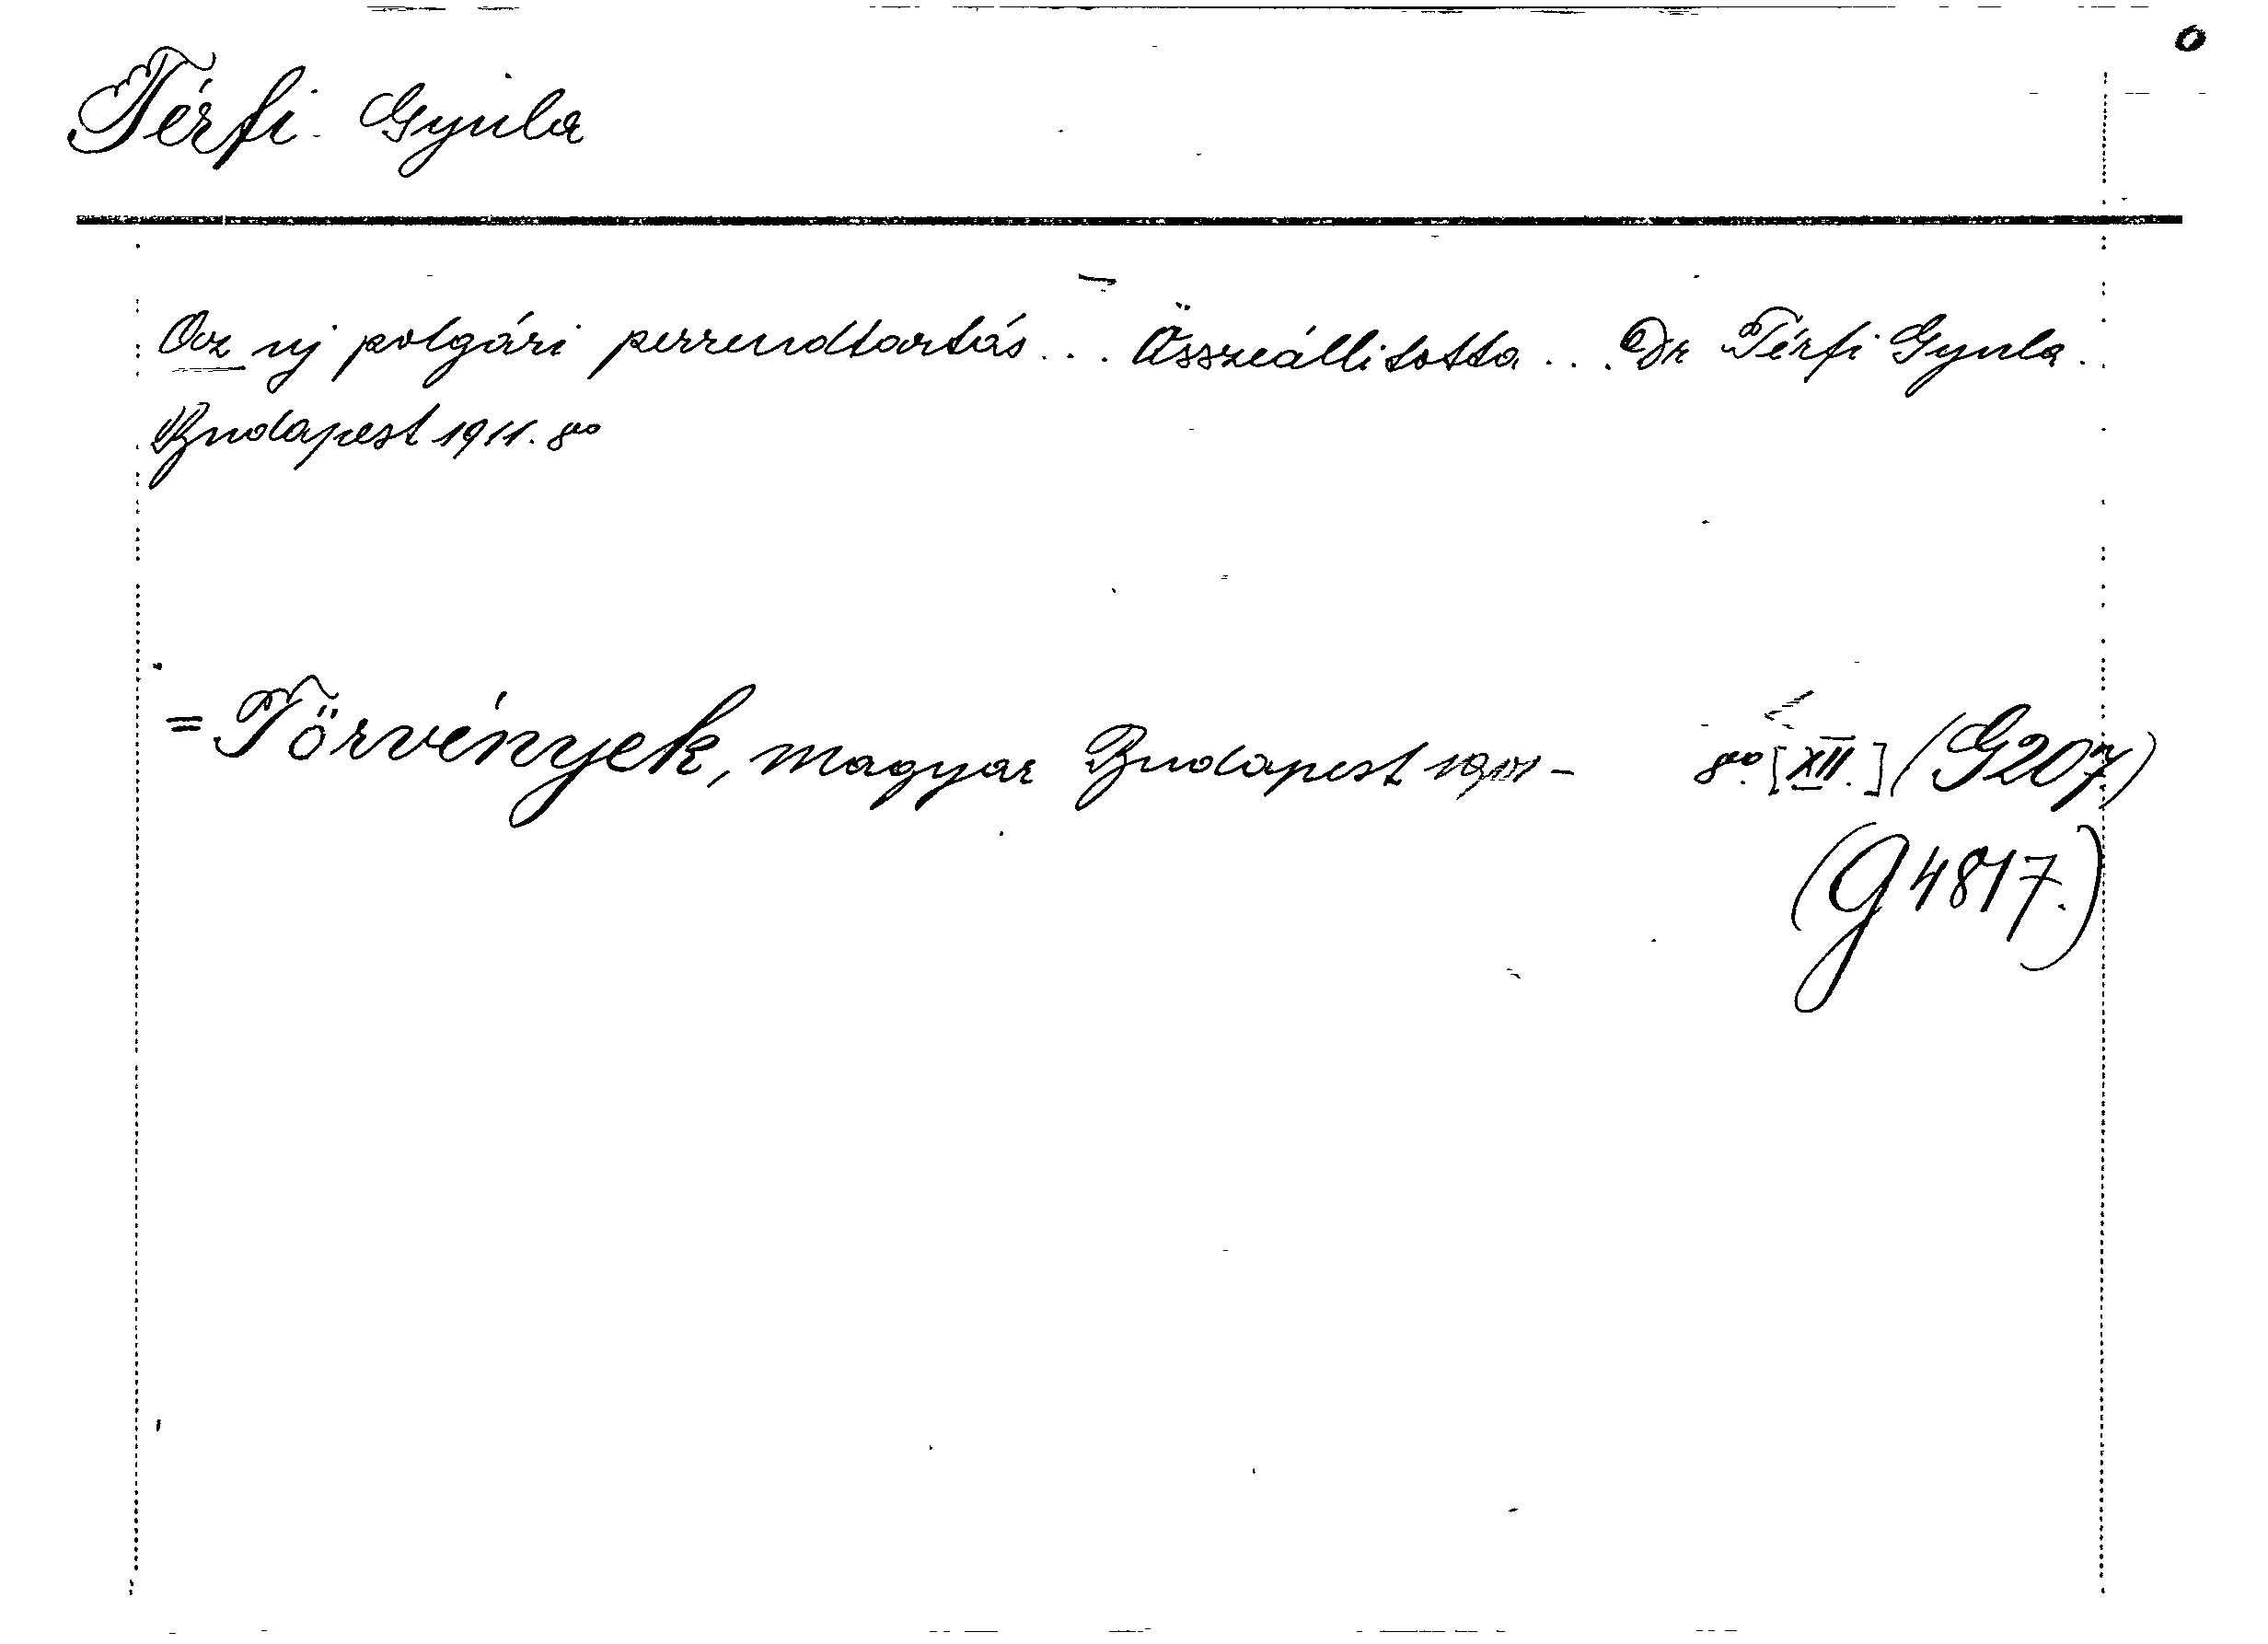 0
Térfi Gyula
Az uj polgári perrendtartás ... Összeállitotta ... Dr Térfi Gyula.
Budapest 1911. 8vo
= Törvények, magyar Budapest 8vo. [XII.] (G207)
(G4817.)